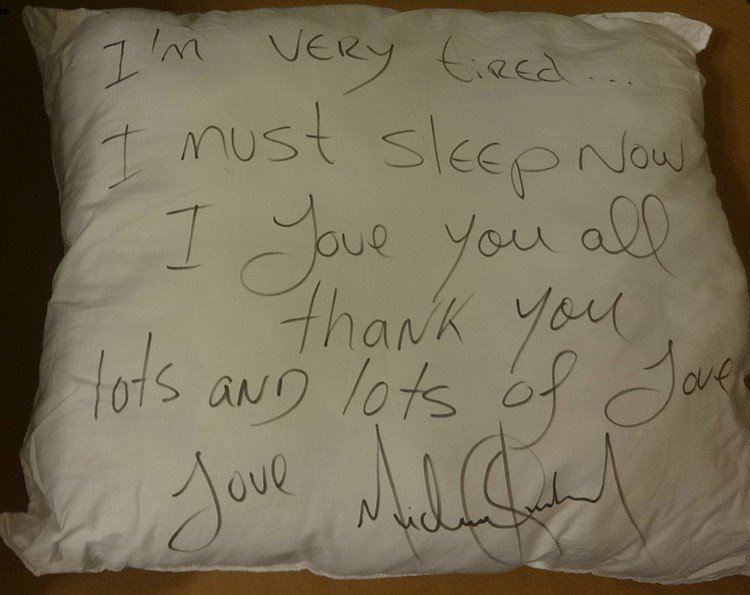 I'm VERY tiRED...
I must slEEp NOW
I Love you all
thaNK you
lots AND lots of Love
Love Michael Jackson